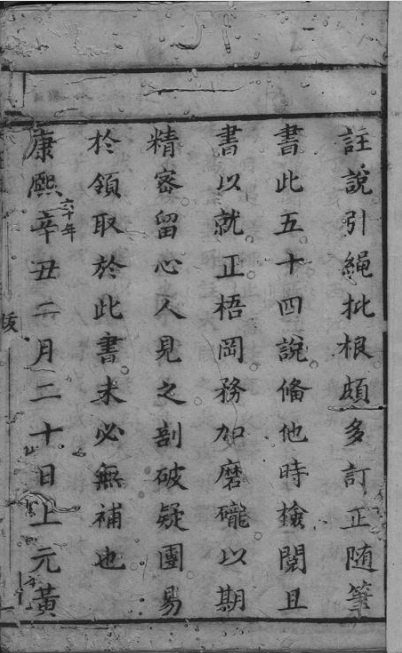 註說引繩批根頗多訂正随筆
書此五十四說俻他時檢閱且
書以就正梧岡務加磨礲以期
精密留心人見之剖破疑團易
於領取於此書未必無補也
康熙辛丑二月二十日上元黃
六十年